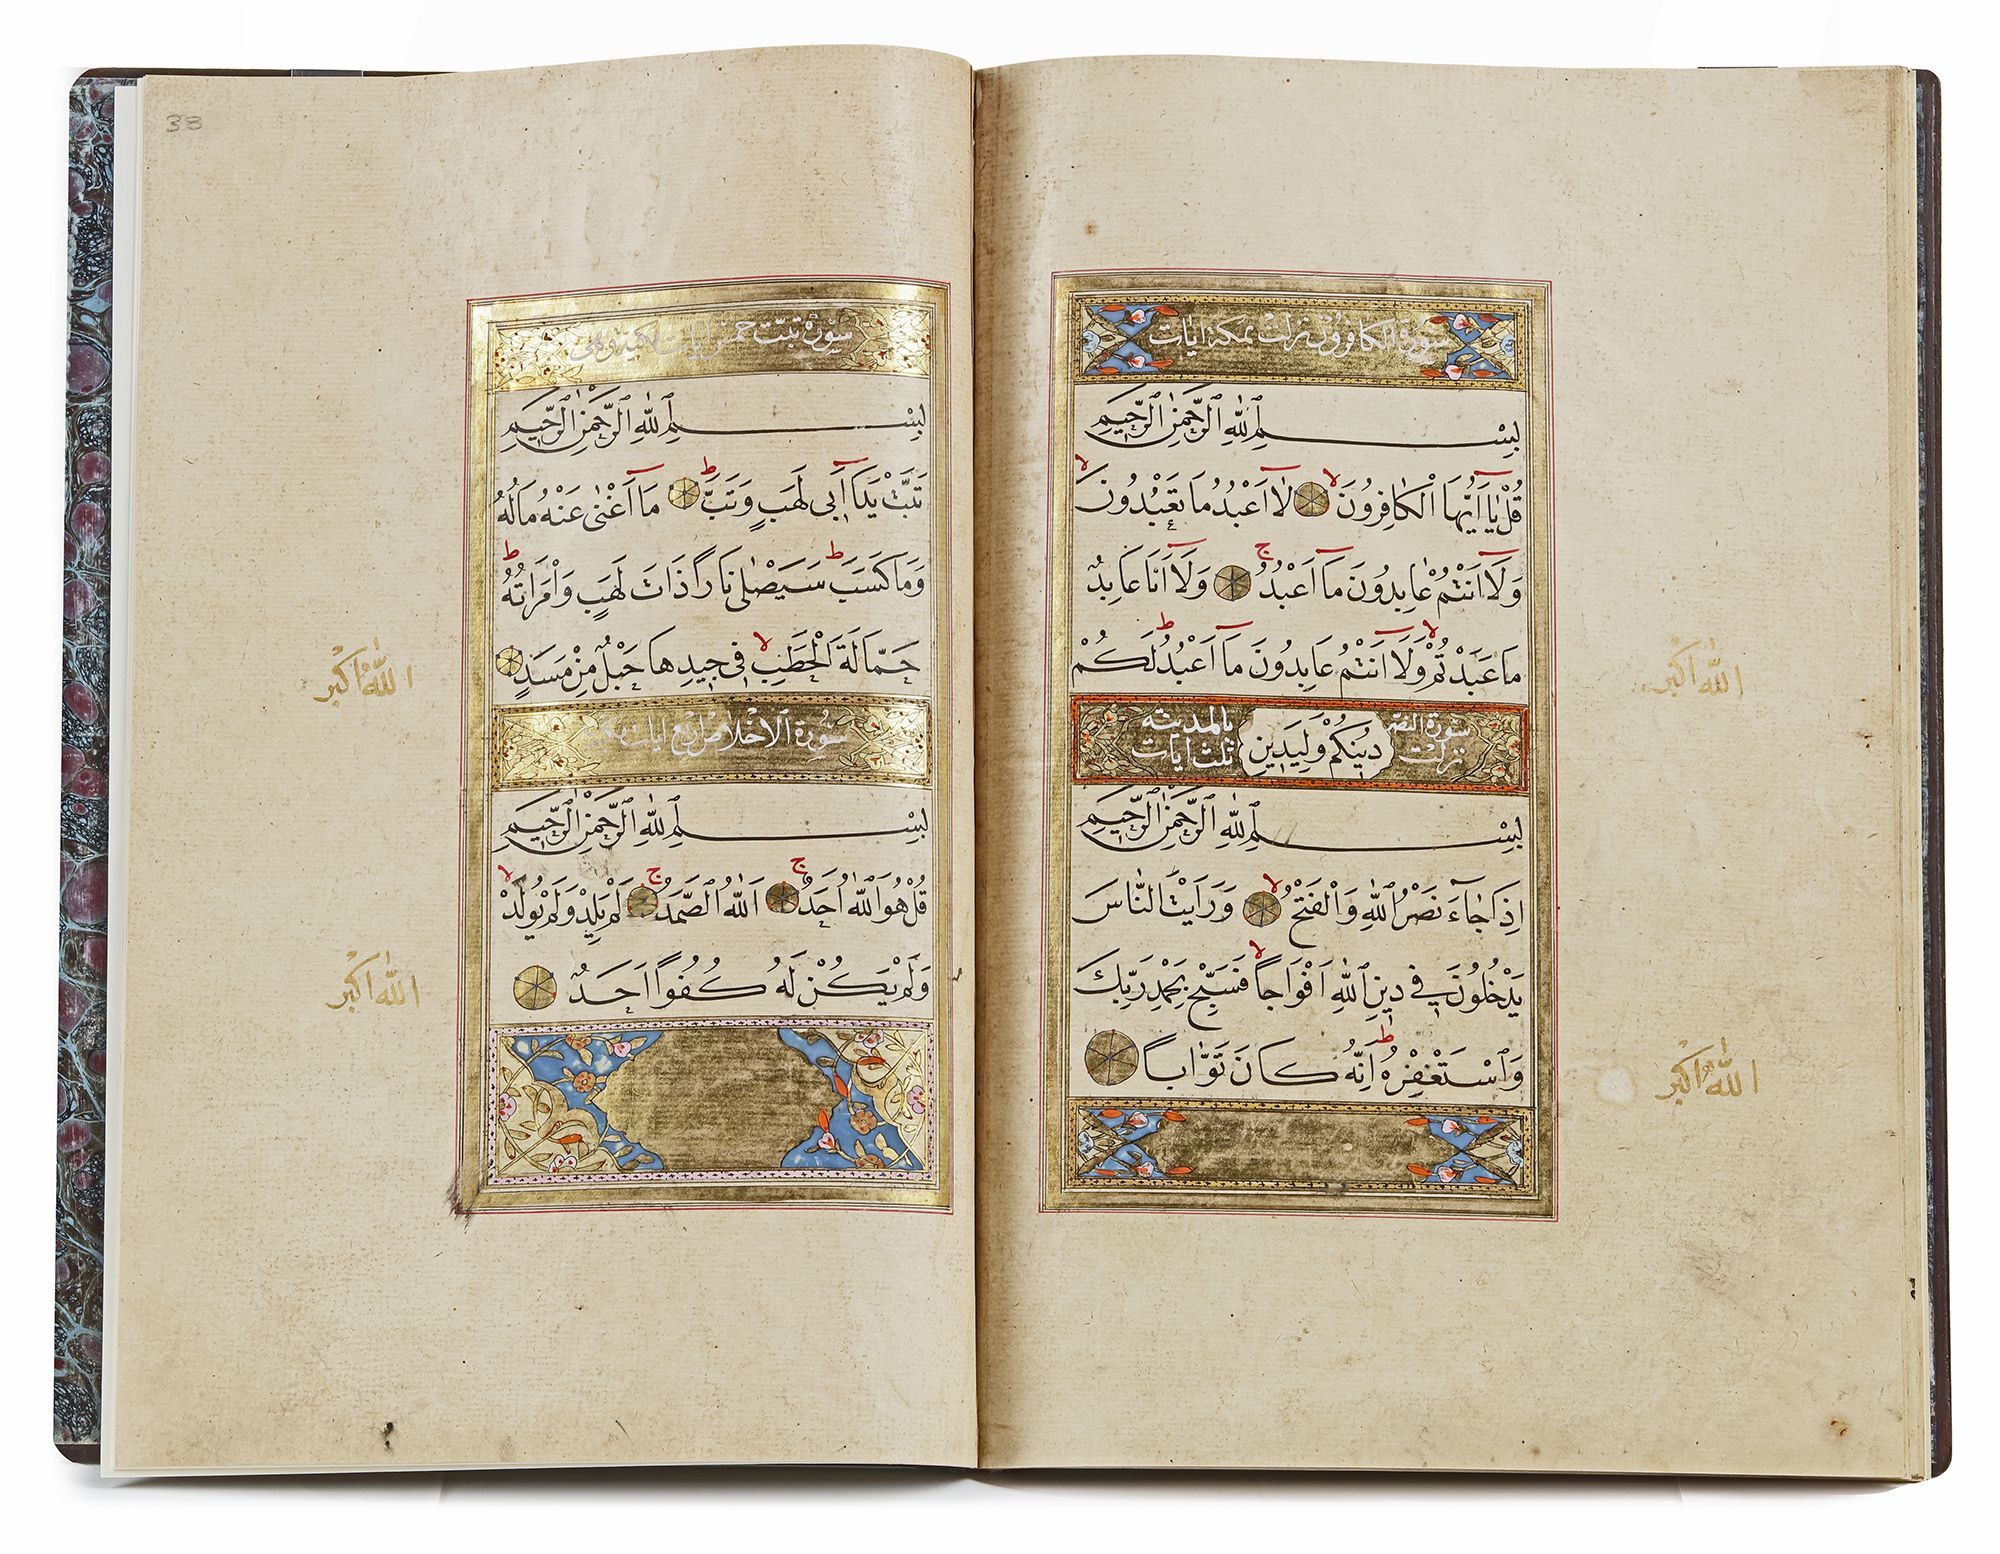 سورة الكافرون نزلت بمكة ايات
بِسْمِ اللّٰهِ الرَّحْمٰنِ الرَّحِيمِ
قُلْ يَٓا اَيُّهَا الْكَافِرُونَ لَٓا اَعْبُدُ مَا تَعْبُدُونَ
وَلَٓا اَنْتُمْ عَابِدُونَ مَٓا اَعْبُدُ وَلَٓا اَنَا عَابِدٌ
مَا عَبَدْتُمْ وَلَٓا اَنْتُمْ عَابِدُونَ مَٓا اَعْبُدُ لَكُمْ
دِينُكُمْ وَلِيَ دِينِ
سورة النصر نزلت بالمدينه ثلث ايات
بِسْمِ اللّٰهِ الرَّحْمٰنِ الرَّحِيمِ
اِذَا جَٓاءَ نَصْرُ اللّٰهِ وَالْفَتْحُ وَرَاَيْتَ النَّاسَ
يَدْخُلُونَ فِي دِينِ اللّٰهِ اَفْوَاجًا فَسَبِّحْ بِحَمْدِ رَبِّكَ
وَاسْتَغْفِرْهُ اِنَّهُ كَانَ تَوَّابًا
اللّٰه اكبر
اللّٰه اكبر
33
سورة تبت خمس ايات مكية وهى
بِسْمِ اللّٰهِ الرَّحْمٰنِ الرَّحِيمِ
تَبَّتْ يَدَٓا اَبِى لَهَبٍ وَتَبَّ مَٓا اَغْنٰى عَنْهُ مَالُهُ
وَمَا كَسَبَ سَيَصْلٰى نَارًا ذَاتَ لَهَبٍ وَامْرَاَتُهُ
حَمَّالَةَ الْحَطَبِ فِي جِيدِهَا حَبْلٌ مِنْ مَسَدٍ
سورة الاخلاص اربع ايات مكية
بِسْمِ اللّٰهِ الرَّحْمٰنِ الرَّحِيمِ
قُلْ هُوَ اللّٰهُ اَحَدٌ اَللّٰهُ الصَّمَدُ لَمْ يَلِدْ وَلَمْ يُولَدْ
وَلَمْ يَكُنْ لَهُ كُفُوًا اَحَدٌ
اللّٰه اكبر
اللّٰه اكبر